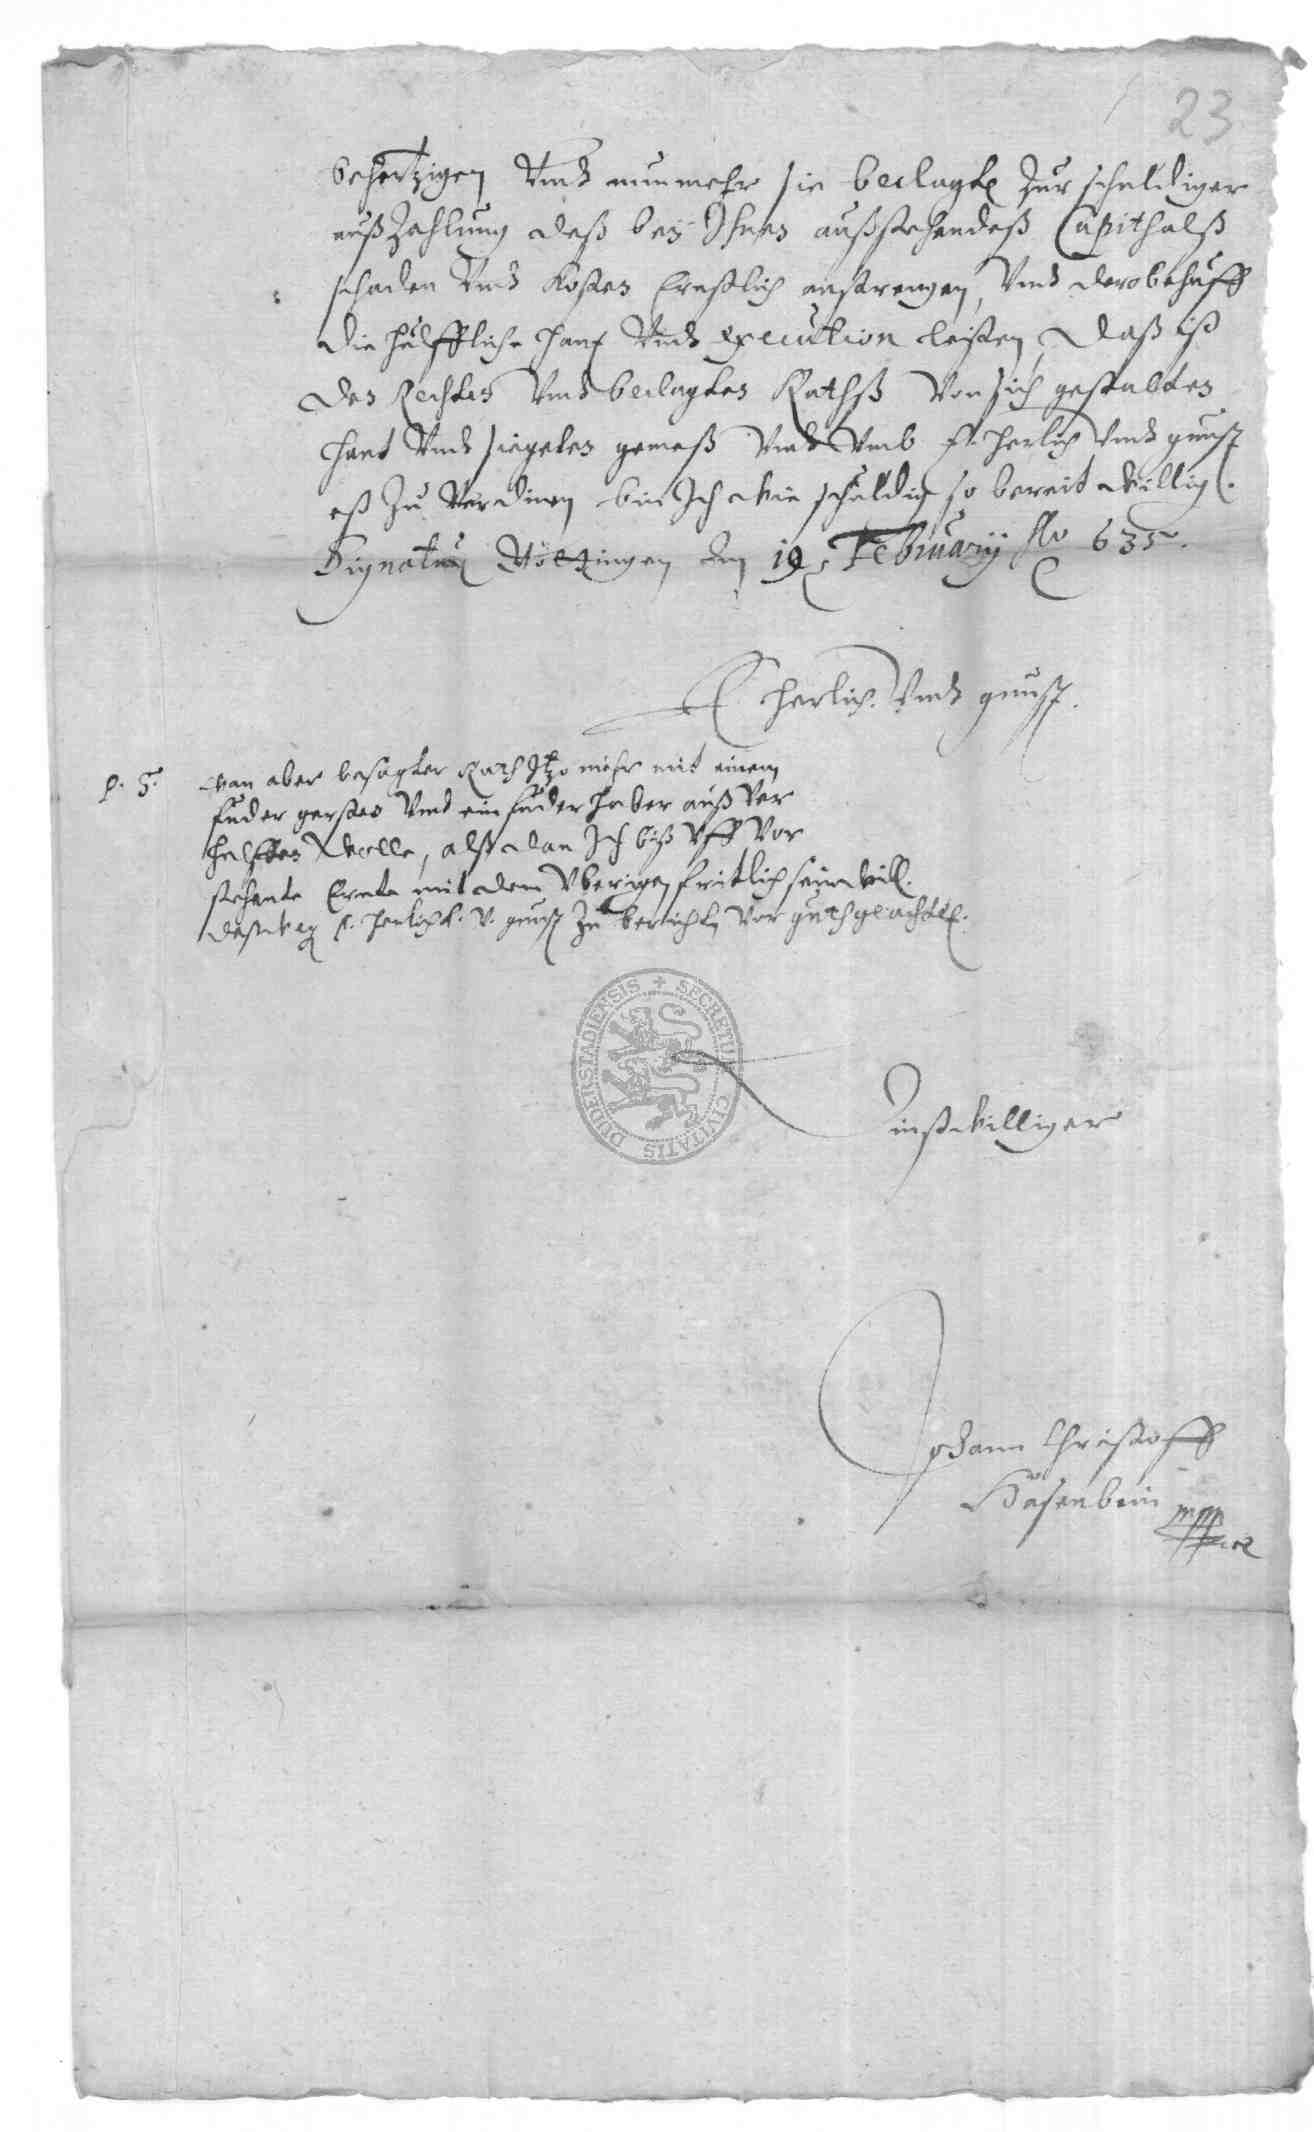 23
behertzigen Vnd nunmehr sie beclagte Zur schuldiger
außZahlung deß beÿ Ihnen außstehendeß Capithalß
schaden Vnd Kosten Ernstlich anstrengen, Vnd derobehuff
die hülffliche hant Vnd execution leisten, daß ist
den Rechten Vnd beclagten Rathß Von sich gestalten
hant Vnd siegelen gemeß Vnd Vmb E. herlich Vnd gunst
eß Zu Verdinen bin Ich wie schuldig so bereit willig.
Signatum den 19 February Ao 635.
E herlich. Vnd gunst.
P. S. wan aber besagter Rath Itzo mehr mit einem
fuder gersten Vnd ein fuder haber auß Ver
helffen wolle, alß dan Ich biß Vff Vor
stehente Ernte mit dem Vberigen fritlich sein will.
deßweg E. herlichk. V. gunst Zu berichten Vor guth geachtet.
SECRETUM CIVITATIS DUDERSTADIENSIS
Dinstwilliger
Johann Christoff
Hasenbein
mpp